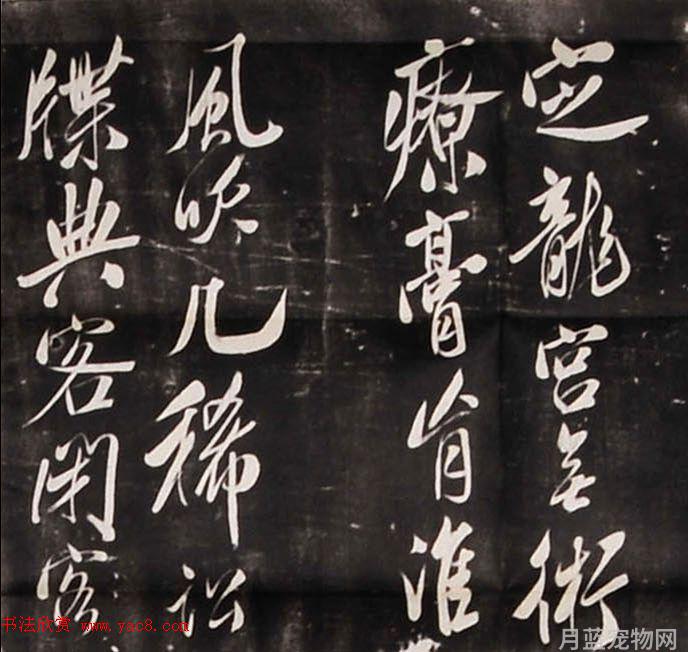 定龍宮無術
療膏肓淮
風吹几稀訟
牒典客閑客
书法欣赏 www.yac8.com
月蓝宠物网